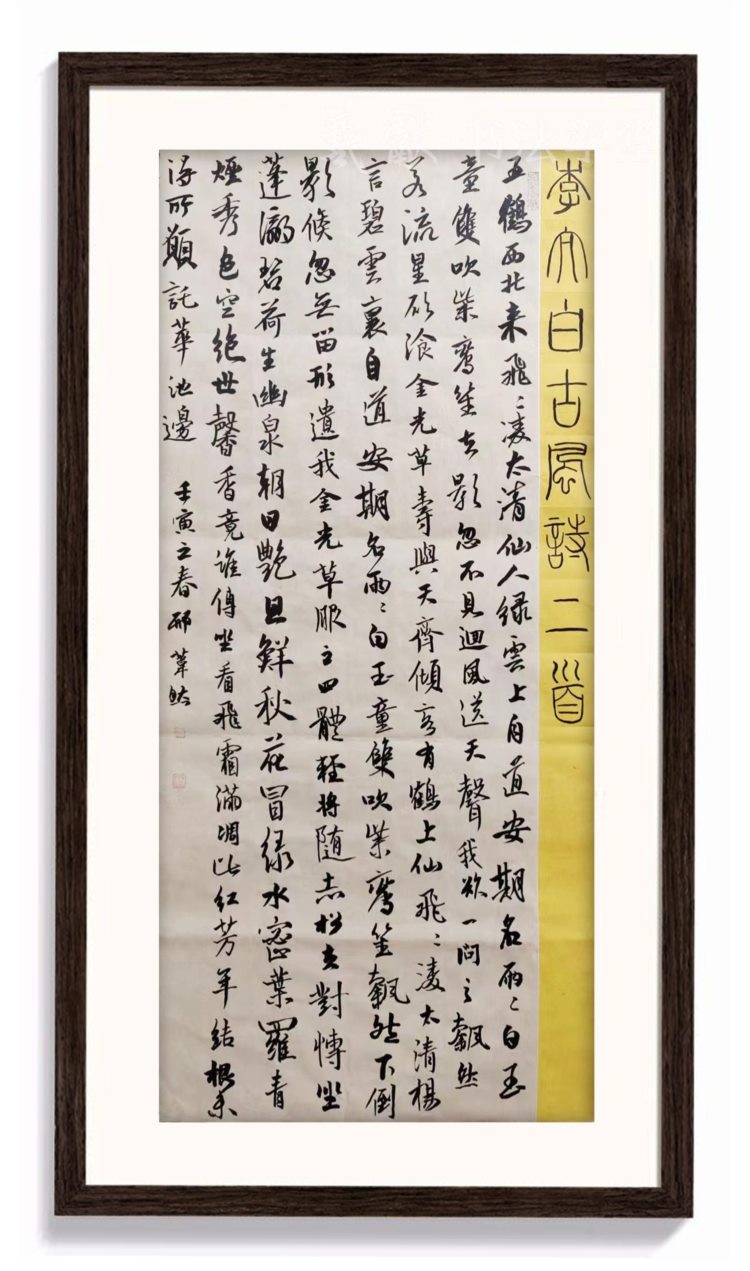 李太白古風詩二首
五鶴西北来飛〻凌太清仙人緑雲上自道安期名兩〻白玉
童雙吹紫鸞笙去影忽不見迴風送天聲我欲一問之飄然
若流星願飡金光草壽與天齊傾客有鶴上仙飛〻凌太清揚
言碧雲裏自道安期名兩〻白玉童雙吹紫鸞笙飄然下倒
影倏忽無留形遺我金光草服之四體輕將隨赤松去對博坐
蓬瀛碧荷生幽泉朝日艷且鮮秋花冒緑水密葉羅青
煙秀色空絕世馨香竟誰傳坐看飛霜滿凋此紅芳年結根未
得所願託華池邊 壬寅之春